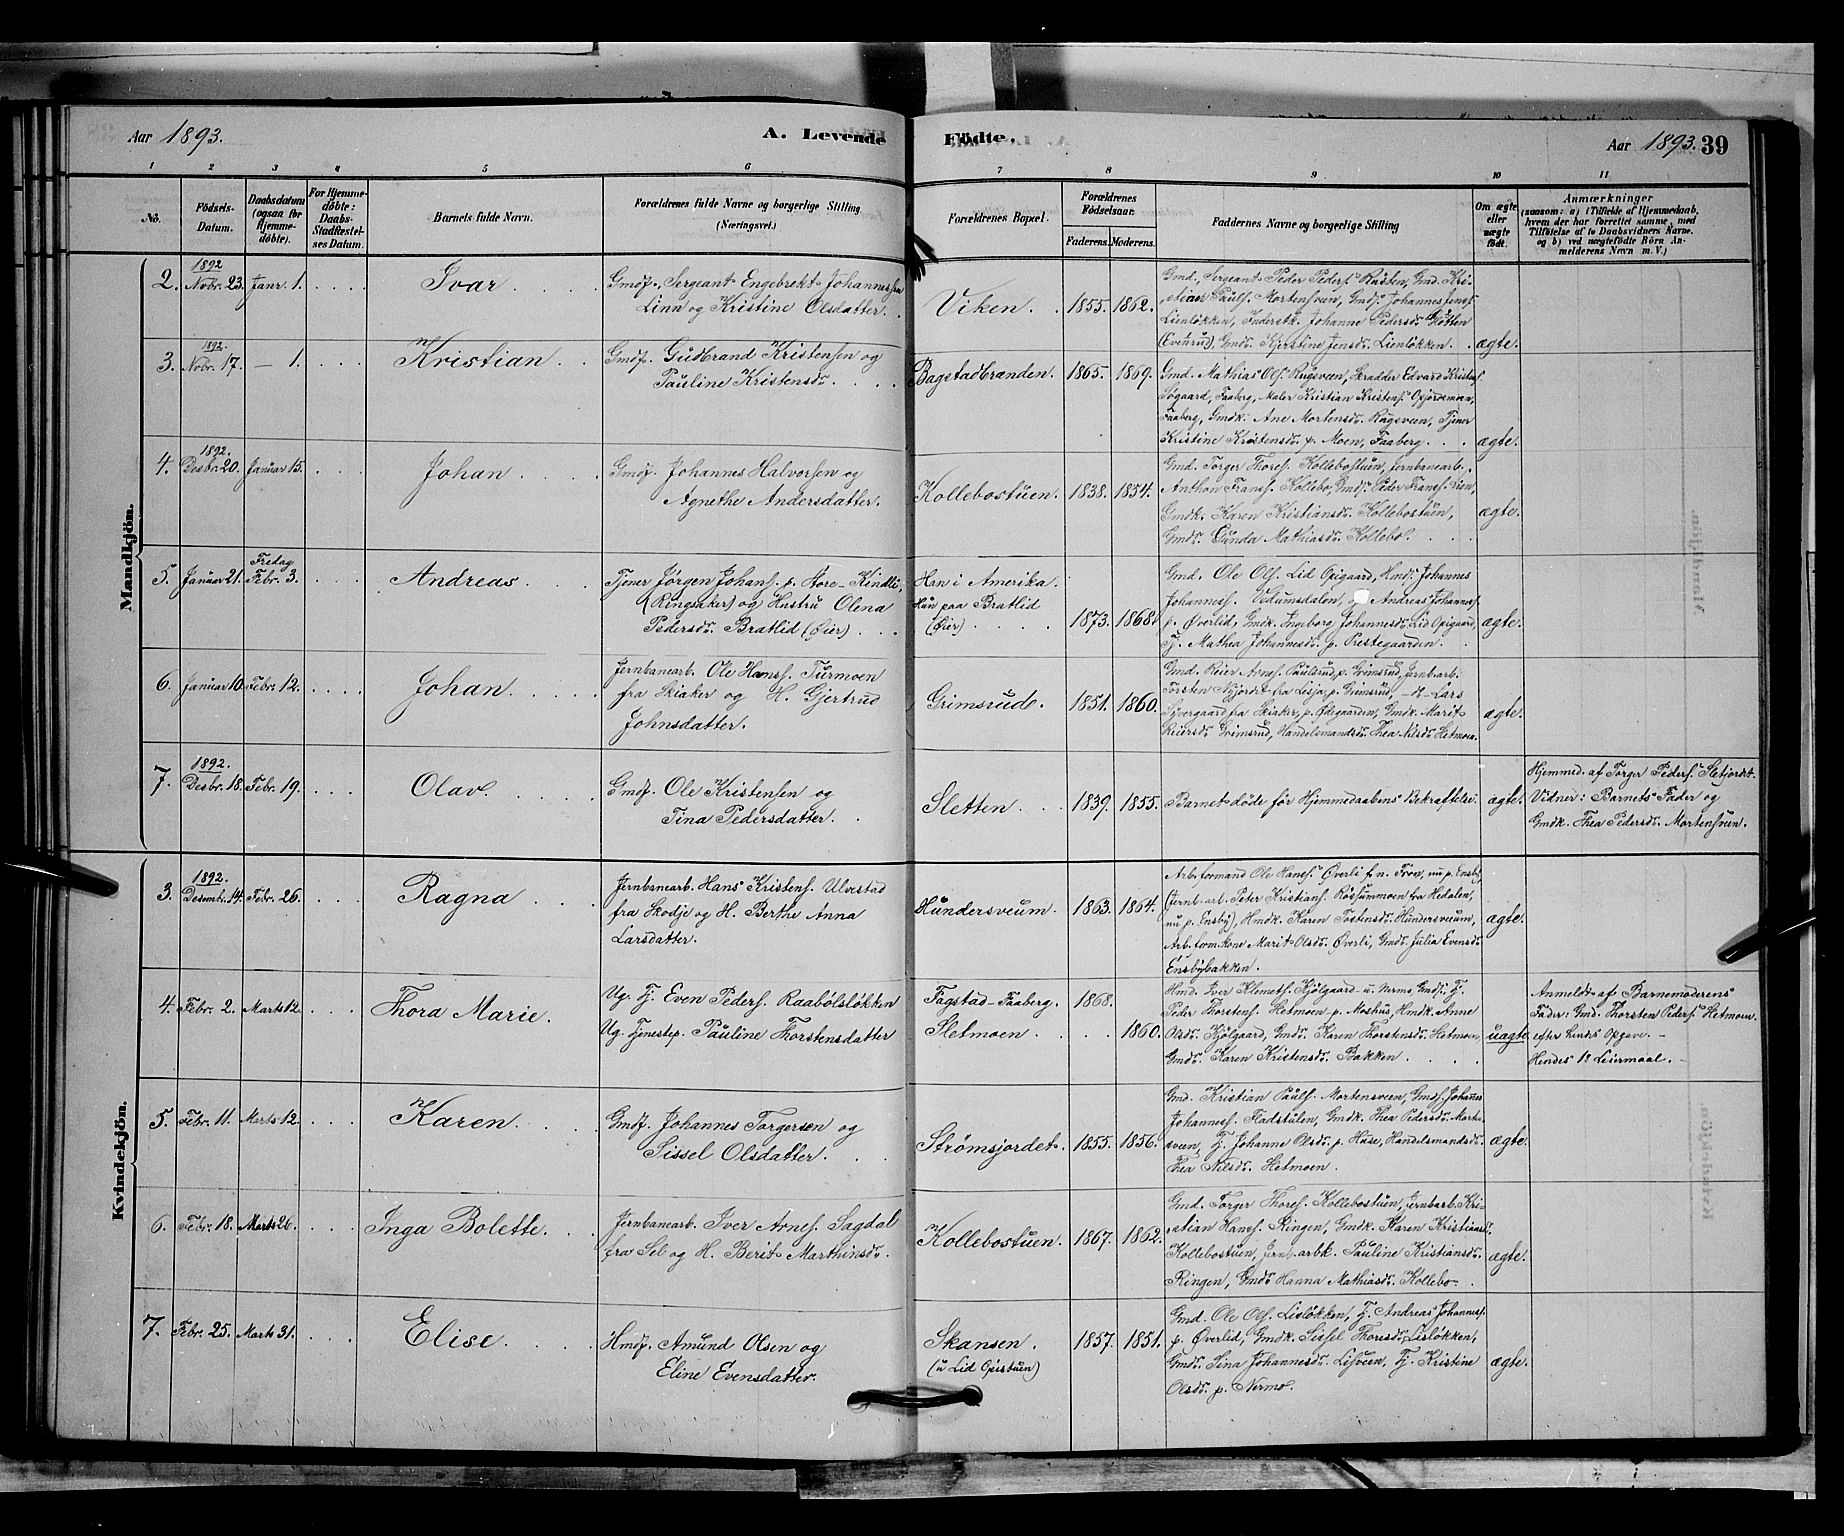 Aar 1893.
A. Levende
Födte.
Aar 1893. 39
1 2 3 4 5 6 7 8 9 10 11
No.
Födsels-
Datum.
Daabsdatum
(ogsaa for
Hjemme-
döbte).
For Hjemme-
döbte:
Daabs-
Stadfæstel-
ses Datum.
Barnets fulde Navn.
Forældrenes fulde Navne og borgerlige Stilling
(Næringsvei.)
Forældrenes Bopæl.
Forældrenes
Födselsaar.
Faderens. Moderens.
Faddernes Navne og borgerlige Stilling
Om ægte
eller
uægte
født.
Anmærkninger
(saasom: a) i Tilfælde af Hjemmedaab,
hvem der har forrettet samme, med
Tilföielse af to Daabsvidners Navne.
og b) ved uægtefödte Börn An-
melderens Navn m. V.)
Mandkjön.
2. 1892 Novbr. 23. Janr. 1. Ivar
Gmdf., Sergeant Engebrekt Johannessen
Linn og Kristine Olsdatter.
Viken. 1855. 1862.
Gmd., Sergeant Peder Peders. Rusten, Gmd. Kri-
stian Pauls. Mortensveen, Gmds. Johannes Jens.
Lienløkken, Inderstk. Johanne Pedersdr. Slotten
(Evenrud), Gmds. Kjerstine Jensdr. Lienløkken. ægte.
3. 1892. Novbr. 17. — 1. Kristian
Gmdf. Gudbrand Kristensen og
Pauline Kristensdr.
Bagstadbranden. 1865. 1869.
Gmd. Mathias Ols. Rugsveen, Skrædder Edvard Kristens.
Søgaard, Faaberg, Maler Kristian Kristens. Gjørdemoen,
Faaberg, Gmdk. Ane Mortensdr. Rugsveen, Tjener
Kristine Kristensdr. p. Moen, Faaberg. ægte.
4. 1892. Desbr. 20. Januar 15. Johan
Gmdf. Johannes Halvorsen og
Agnethe Andersdatter.
Kollebostuen. 1838. 1854.
Gmd. Torger Thores. Kollebostuen, Jernbanearb.
Anthon Frans. Kollebo, Gmds. Peder Frans. Lien,
Gmdk. Karen Kristiansdr. Kollebostuen,
Gmds. Gunda Mathiasdr. Kollebo. ægte.
5. Januar 21. Fredag Febr. 3. Andreas
Tjener Jørgen Johans. p. Hore-Kindli,
(Ringsaker) og Hustru Olena
Pedersdr. Bratlid (Øier)
Han i Amerika.
Hun paa Bratlid
(Øier) 1873. 1868.
Gmd. Ole Ols. Lid Opigaard, Hmds. Johannes
Johanness. Vedumsdalen, Andreas Johanness.
p. Øverlid, Gmdk. Ingeborg Johannesdr. Lid Opigaard,
Tj. Mathea Johannesdr. p. Prestegaarden. ægte.
6. Januar 10. Febr. 12. Johan
Jernbanearb. Ole Hans. Turmoen
fra Skiaker og H. Gjertrud
Johnsdatter.
Grimsrud. 1851. 1860.
Gmd. Reier Arnes. Paulsrud, p. Grimsrud, Jernb.arb.
Torsten fra Lesja, p. Grimsrud, — H — Lars
Syvergaard fra Skiaker, p. Ødegaarden, Gmdk. Marit
Reiersdr. Grimsrud, Handelsmandsdr. Thea Nilsdr. Hetmoen. ægte.
7. 1892. Desbr. 18. Febr. 19. Olav
Gmdf. Ole Kristensen og
Tina Pedersdatter.
Sletten 1839. 1855.
Barnet døde før Hjemmedaabens Bekræftelse. ægte.
Hjemmed. af Torger Peders. Sletjordet.
Vidner: Barnets Fader og
Gmdk. Thea Pedersdr. Mortensveen.
Kvindekjön.
3. 1892. Desembr. 14. Febr. 26. Ragna
Jernbanearb. Hans Kristens. Ulvestad
fra Skodje og H. Berthe Anna
Larsdatter.
Hundersveum. 1863. 1864.
Arb.formand Ole Hans. Øverli f. n. Fron, nu p. Ensby
(Jernb. arb. Peter Kristians. Røssummoen fra Hedalen,
nu p. Ensby), Hmdk. Karen Tostensdr. Hundersveum,
Arb. form. kone Marit Olsdr. Øverli, Gmds. Julia Evensdr.
Ensbybakken. ægte.
4. Febr. 2. Marts 12. Thora Marie.
Ug. Tj. Even Peders. Raabølsløkken
Ug. Tjenestep. Pauline Thorstensdatter
Fagstad-Faaberg. 1868.
Hetmoen 1860.
Hmd. Iver Klemets. Kjølgaard u. Nermo, Gmds. Tj.
Peder Thorstens. Hetmoen p. Moshus, Hmdk. Anne
Olsdr. Kjølgaard, Gmds. Karen Thorstensdr. Hetmoen,
Gmds. Karen Kristensdr. Bakken. uægte
Anmeldt af Barnemoderens
Fader: Gmd. Thorsten Peders. Hetmoen.
efter hendes Opgave. —
Hendes 1ste Leiermaal. —
5. Febr. 11. Marts 12. Karen
Gmdf. Johannes Torgersen og
Sissel Olsdatter.
Strømsjordet. 1855. 1856.
Gmd. Kristian Pauls. Mortensveen, Gmds. Johannes
Johanness. Fladstulen, Gmdk. Thea Pedersdr. Mortens-
veen, Tj. Johanne Olsdr. p. Hase, Handelsmandsdr.
Thea Nilsdr. Hetmoen. ægte.
6. Febr. 18. Marts 26. Inga Bolette.
Jernbanearb. Iver Arnes. Sagdal
fra Sel og H. Berit Marthinsdr.
Kollebostuen. 1867. 1862.
Gmd. Torger Thores. Kollebostuen, Jernbarb. Kri-
stian Hans. Ringen, Gmdk. Karen Kristiansdr.
Kollebostuen, Jernb. arbk. Pauline Kristiansdr.
Ringen, Gmds. Hanna Mathiasdr. Kollebo. ægte.
7. Febr. 25. Marts 31. Elise
Hmdf. Amund Olsen og
Eline Evensdatter.
Skansen.
(u. Lid Opistuen) 1857. 1851.
Gmd. Ole Ols. Lisløkken, Tj. Andreas Johanness.
p. Øverlid, Gmdk. Sissel Thoresdr. Lisløkken,
Gmds. Sina Johannesdr. Lisveen, Tj. Kristine
Olsdr. p. Nermo. ægte.